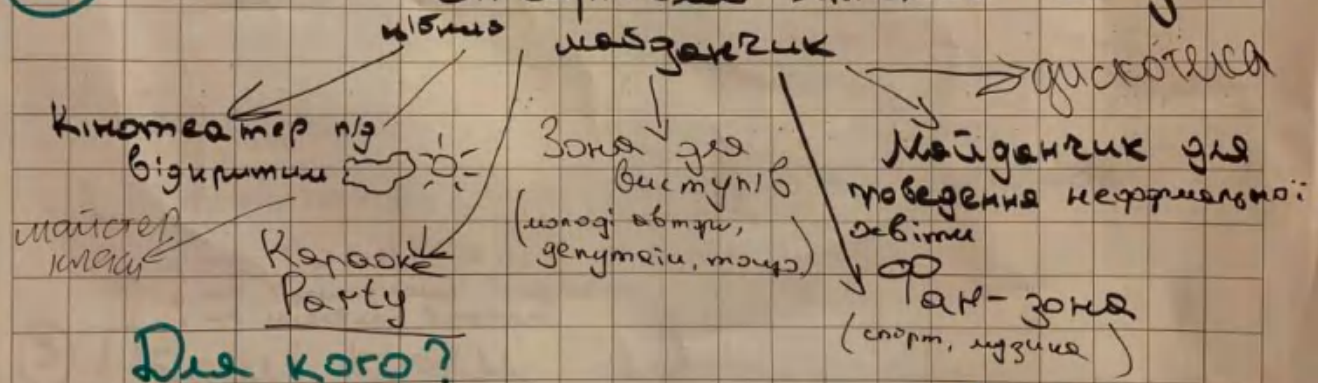 майданчик
дискотека
Кінотеатр під
відкритим
майстер
класи
Караоке
Party
Зона для
виступів
(молоді автори,
депутати, тощо)
Майданчик для
проведення неформальної
освіти
Фан-зона
(спорт, музика)
Для кого?